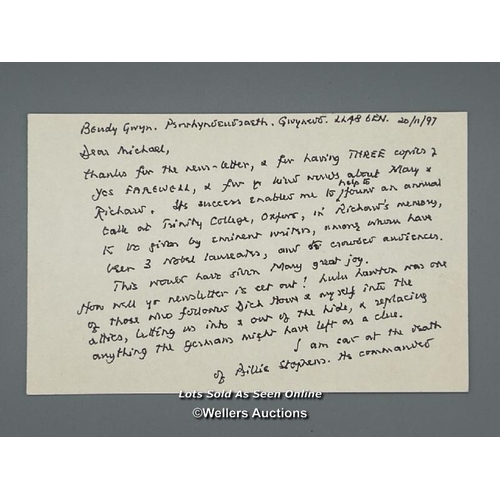 Bendy Gwyn. Penrhyndeudraeth. Gwynedd. LL48 6EN. 20/11/97
Dear Michael,
thanks for the news-letter, & for having THREE copies of
Yes FAREWELL, & for yr kind words about Mary &
Richard. Its success enabled me to help to found an annual
talk at Trinity College, Oxford, in Richard's memory,
to be given by eminent writers, among whom have
been 3 Nobel laureates, and to crowded audiences.
This would have given Mary great joy.
How well yr newsletter is set out! Lulu Lawton was one
of those who followed Dick Howe & myself into the
attics, letting us into & out of the hide, & replacing
anything the Germans might have left as a clue.
I am sad at the death
of Billie Stephens. He commanded
Lots Sold As Seen Online
©Wellers Auctions